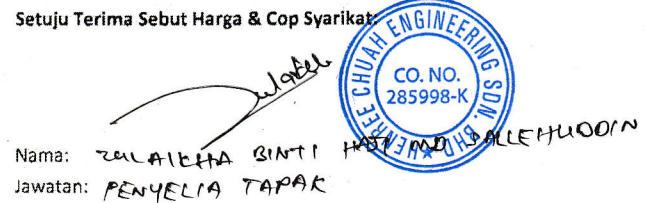 Setuju Terima Sebut Harga & Cop Syarikat:
HENREE CHUAH ENGINEERING SDN. BHD
CO. NO.
285998-K
Nama: ZULAIKHA BINTI HAJI MD SALLEHUDDIN
Jawatan: PENYELIA TAPAK